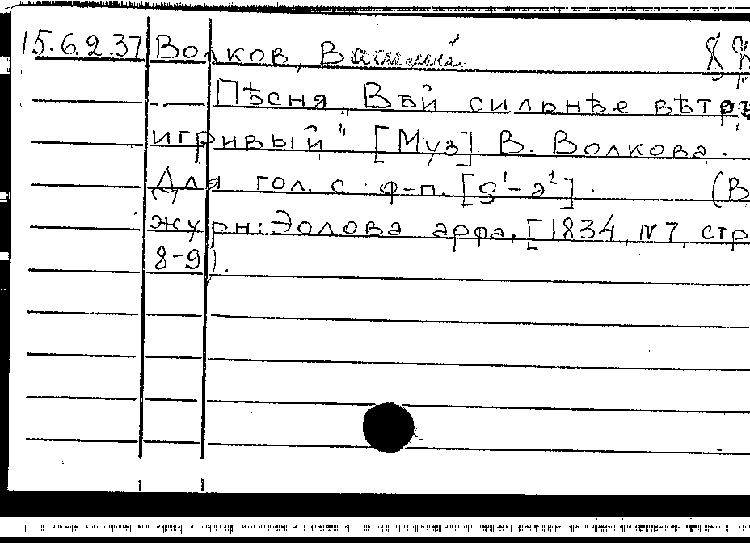 15.6.2.37 Волков, Василий
Пѣсня „Вѣй сильнѣе вѣтръ
игривый" [Муз] В. Волкова.
Для гол. с ф-п. [g¹-a²]. (В
журн: Эолова арфа. [1834, № 7, стр
8-9).